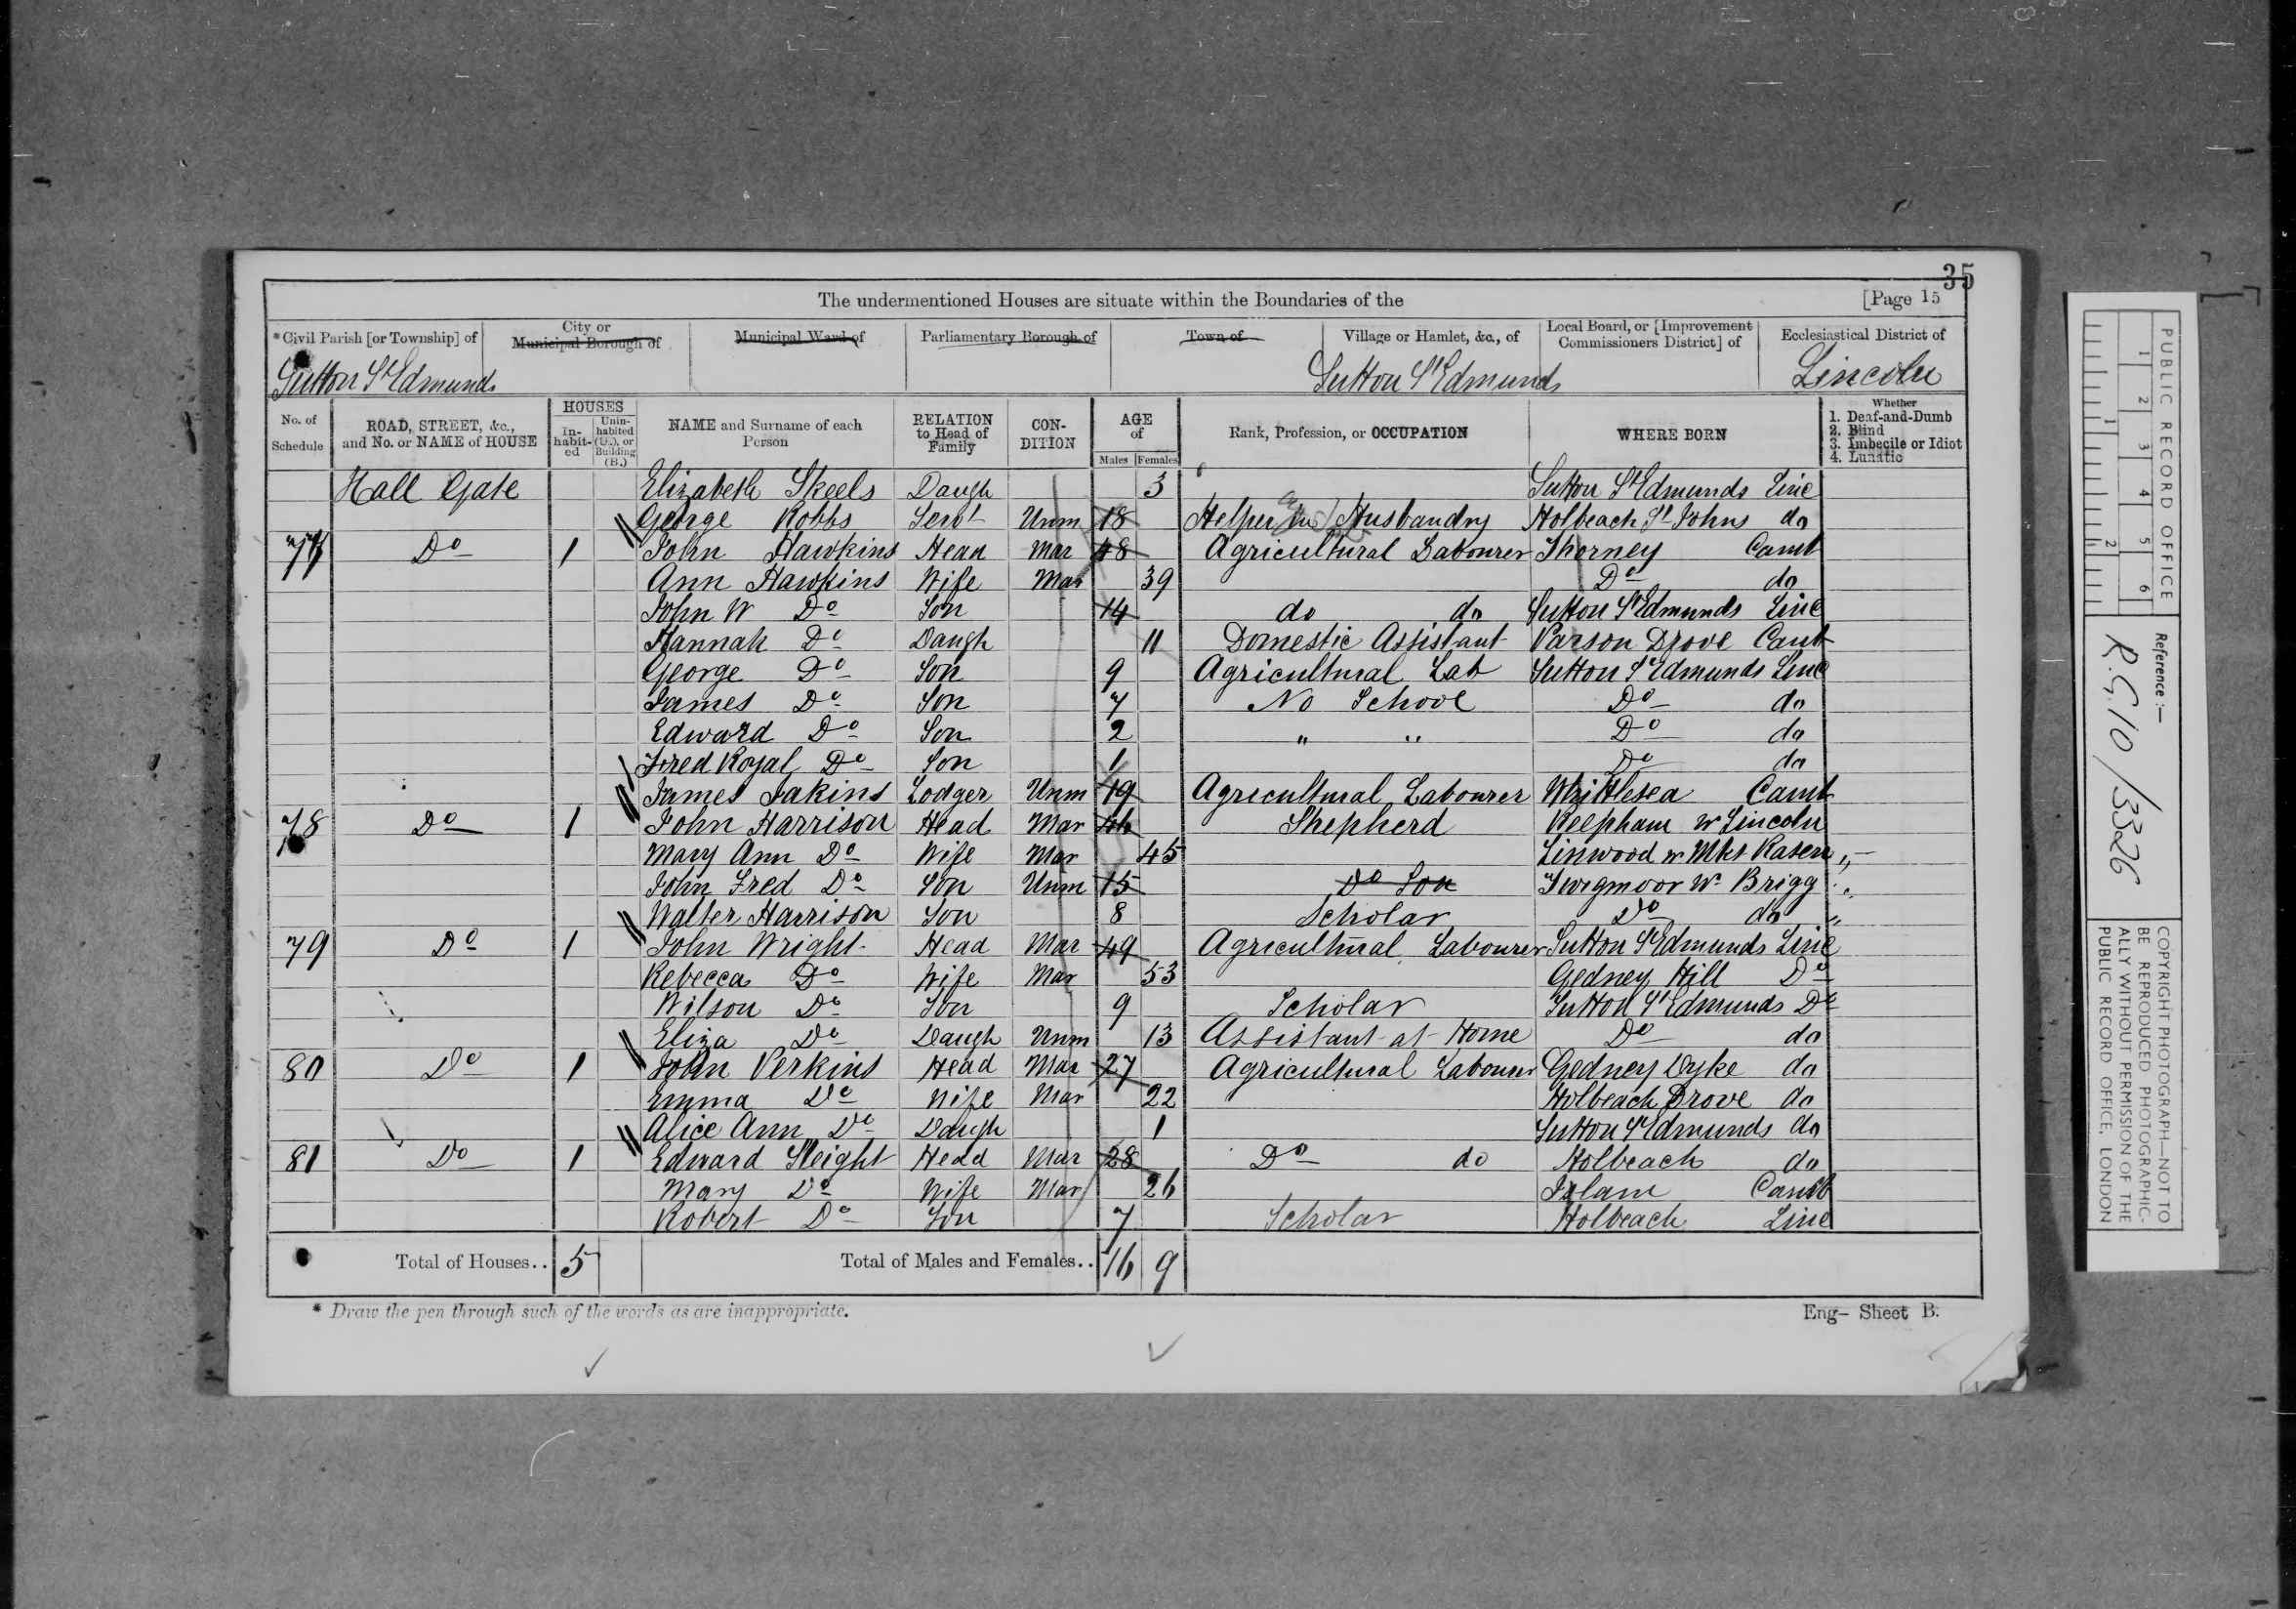 35
The undermentioned Houses are situate within the Boundaries of the [Page 15
*Civil Parish [or Township] of City or Municipal Borough of Municipal Ward of Parliamentary Borough of Town of Village or Hamlet, &c., of Local Board, or [Improvement Commissioners District] of Ecclesiastical District of
Sutton St Edmunds Sutton St Edmunds Lincoln
No. of Schedule ROAD, STREET, &c., and No. or NAME of HOUSE HOUSES In-habit-ed Unin-habited (U.), or Building (B.) NAME and Surname of each Person RELATION to Head of Family CON-DITION AGE of Males Females Rank, Profession, or OCCUPATION WHERE BORN Whether 1. Deaf-and-Dumb 2. Blind 3. Imbecile or Idiot 4. Lunatic
Hall Gate Elizabeth Skeels Daugh 3 Sutton St Edmunds Linc
George Robbs Servt Unm 18 Helper in Husbandry Holbeach St Johns do
77 Do 1 John Hawkins Head Mar 48 Agricultural Labourer Thorney Camb
Ann Hawkins Wife Mar 39 Do do
John W Do Son 14 do do Sutton St Edmunds Linc
Hannah Do Daugh 11 Domestic Assistant Parson Drove Camb
George Do Son 9 Agricultural Lab Sutton St Edmunds Linc
James Do Son 7 No School Do do
Edward Do Son 2 " " Do do
Fred Royal Do Son 1 Do do
James Jakins Lodger Unm 19 Agricultural Labourer Whittlesea Camb
78 Do 1 John Harrison Head Mar 46 Shepherd Reepham nr Lincoln
Mary Ann Do Wife Mar 45 Linwood nr Mkt Rasen "
John Fred Do Son Unm 15 Do Son Twigmoor nr Brigg "
Walter Harrison Son 8 Scholar Do do "
79 Do 1 John Wright Head Mar 49 Agricultural Labourer Sutton St Edmunds Linc
Rebecca Do Wife Mar 53 Gedney Hill Do
Wilson Do Son 9 Scholar Sutton St Edmunds Do
Eliza Do Daugh Unm 13 Assistant at Home Do do
80 Do 1 John Perkins Head Mar 27 Agricultural Labourer Gedney Dyke do
Emma Do Wife Mar 22 Holbeach Drove do
Alice Ann Do Daugh 1 Sutton St Edmunds do
81 Do 1 Edward Sleight Head Mar 28 Do do Holbeach do
Mary Do Wife Mar 26 Camb
Robert Do Son 7 Scholar Holbeach Linc
Total of Houses.. 5 Total of Males and Females.. 16 9
* Draw the pen through such of the words as are inappropriate. Eng— Sheet B.
PUBLIC RECORD OFFICE
1 2 3 4 5 6
1 2
Reference:—
R.G. 10/3326
COPYRIGHT PHOTOGRAPH—NOT TO
BE REPRODUCED PHOTOGRAPHIC-
ALLY WITHOUT PERMISSION OF THE
PUBLIC RECORD OFFICE, LONDON